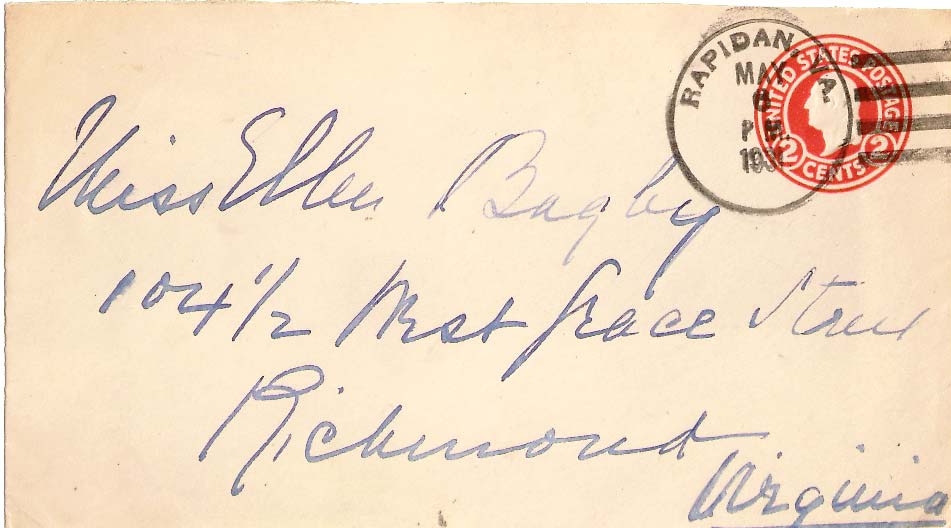 RAPIDAN, VA.
MAY
P M
UNITED STATES POSTAGE
2 CENTS 2
Miss Ellen Bagby
104 1/2 West Grace Street
Richmond
Virginia